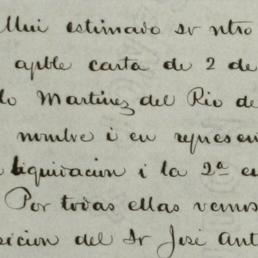 Mui estimado sr ntro
apble carta de 2 de
lo Martinez del Rio de
nombre i en represen
liquidacion i la 2ª en
Por todas ellas vemos
sicion del Sr José Ant